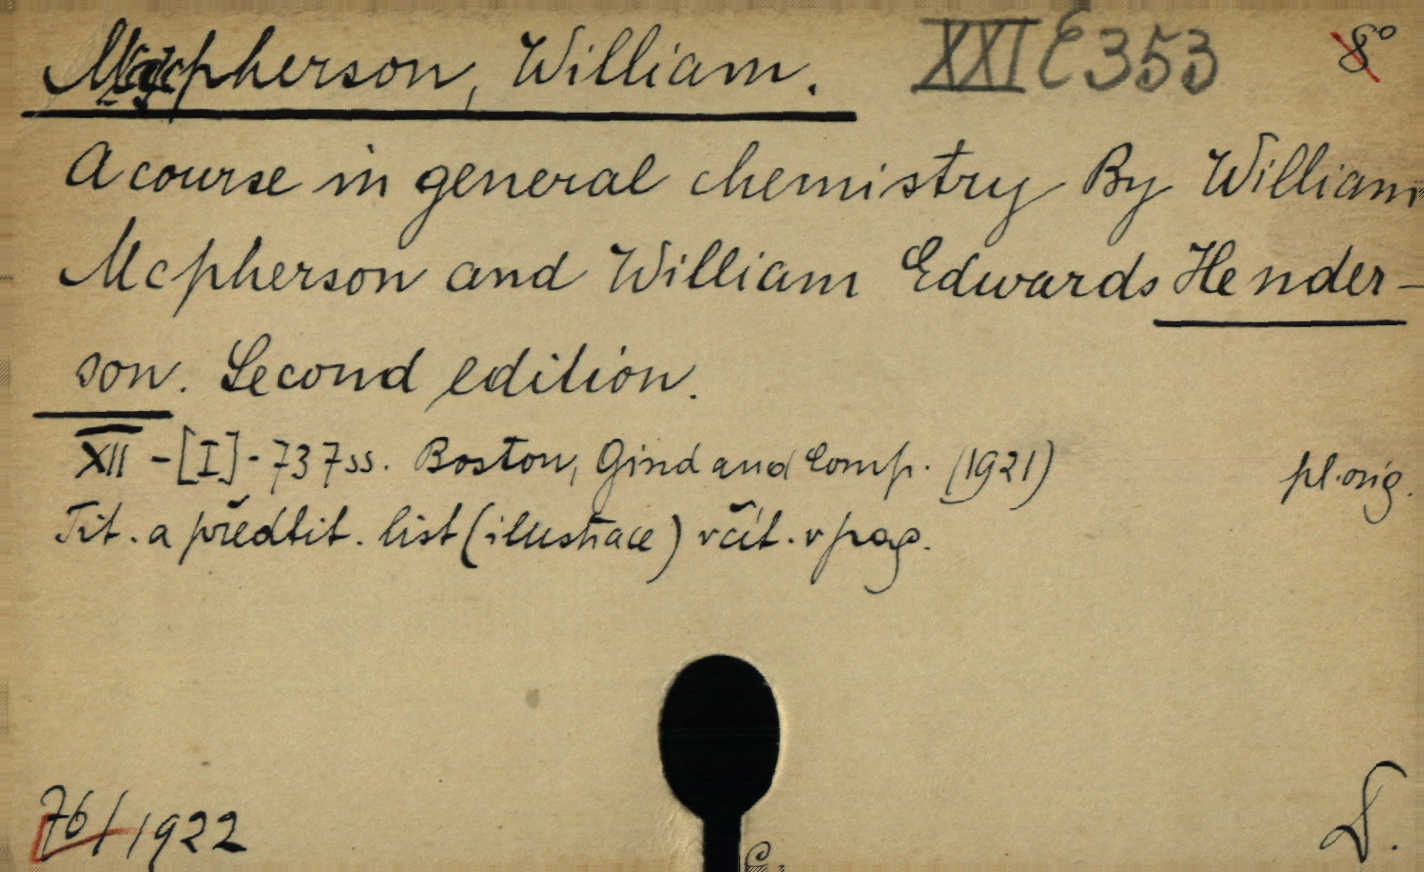 Mcpherson, William. XXI E 353 8°
A course in general chemistry By William
Mcpherson and William Edwards Hender-
son. Second edition.
XII-[I]-737 ss. Boston, Gind and Comp. (1921) pl. orig.
Tit. a předtit. list (ilustrace) včít. v pag.
76/1922